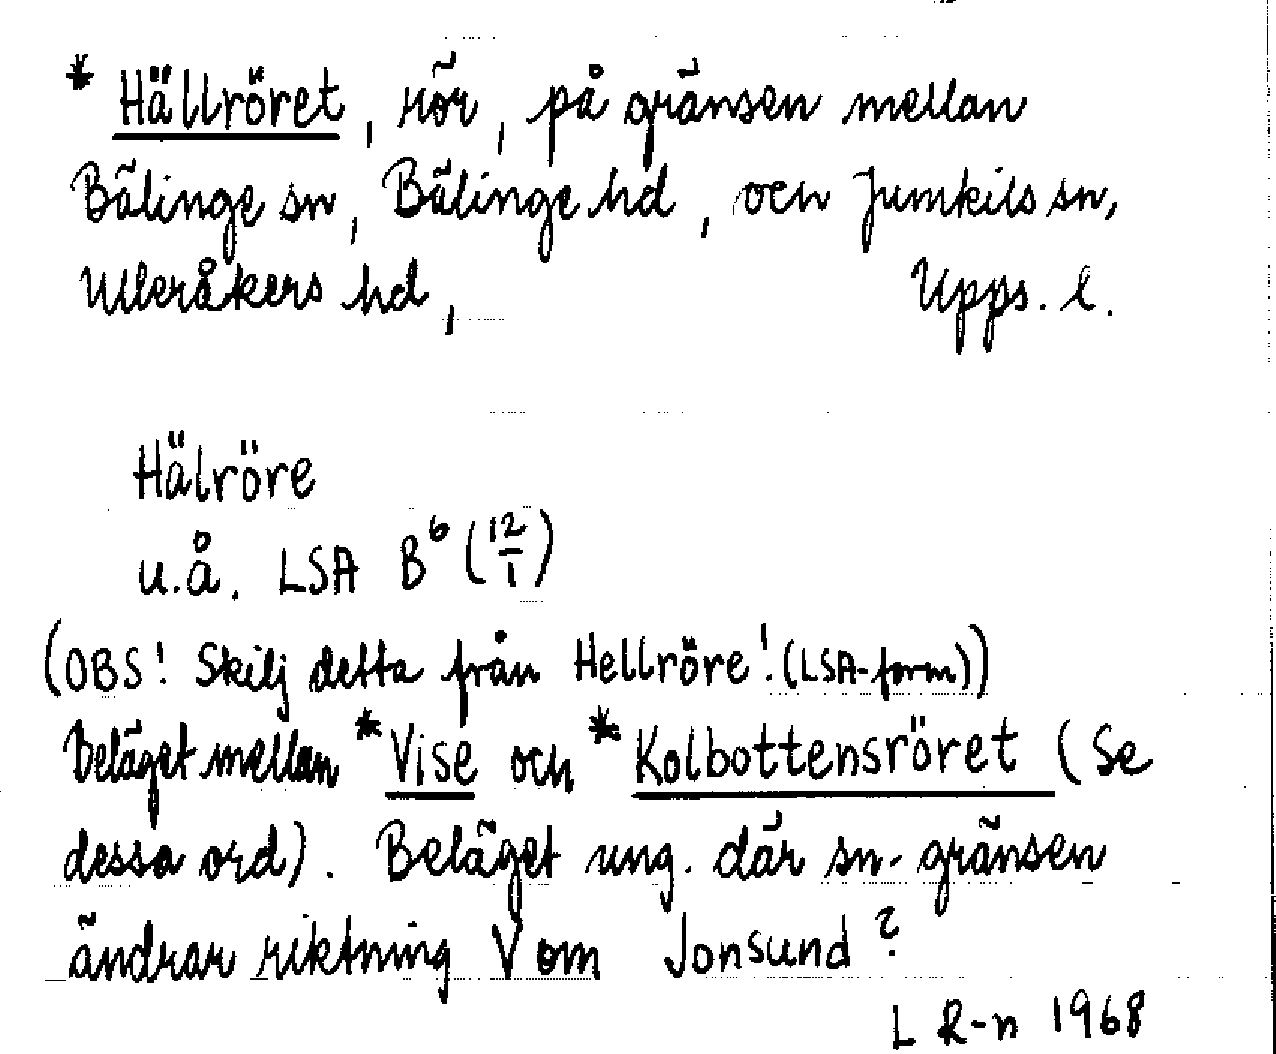 * Hällröret, rör, på gränsen mellan
Bälinge sn, Bälinge hd, och Jumkils sn,
Ulleråkers hd, Upps. l.
Hälröre
u.å. LSA B⁶ (12/1)
(OBS! Skilj detta från Hellröre! (LSA-form))
Beläget mellan *Vise och *Kolbottensröret (Se
dessa ord). Beläget ung. där sn-gränsen
ändrar riktning V om Jonsund?
L R-n 1968